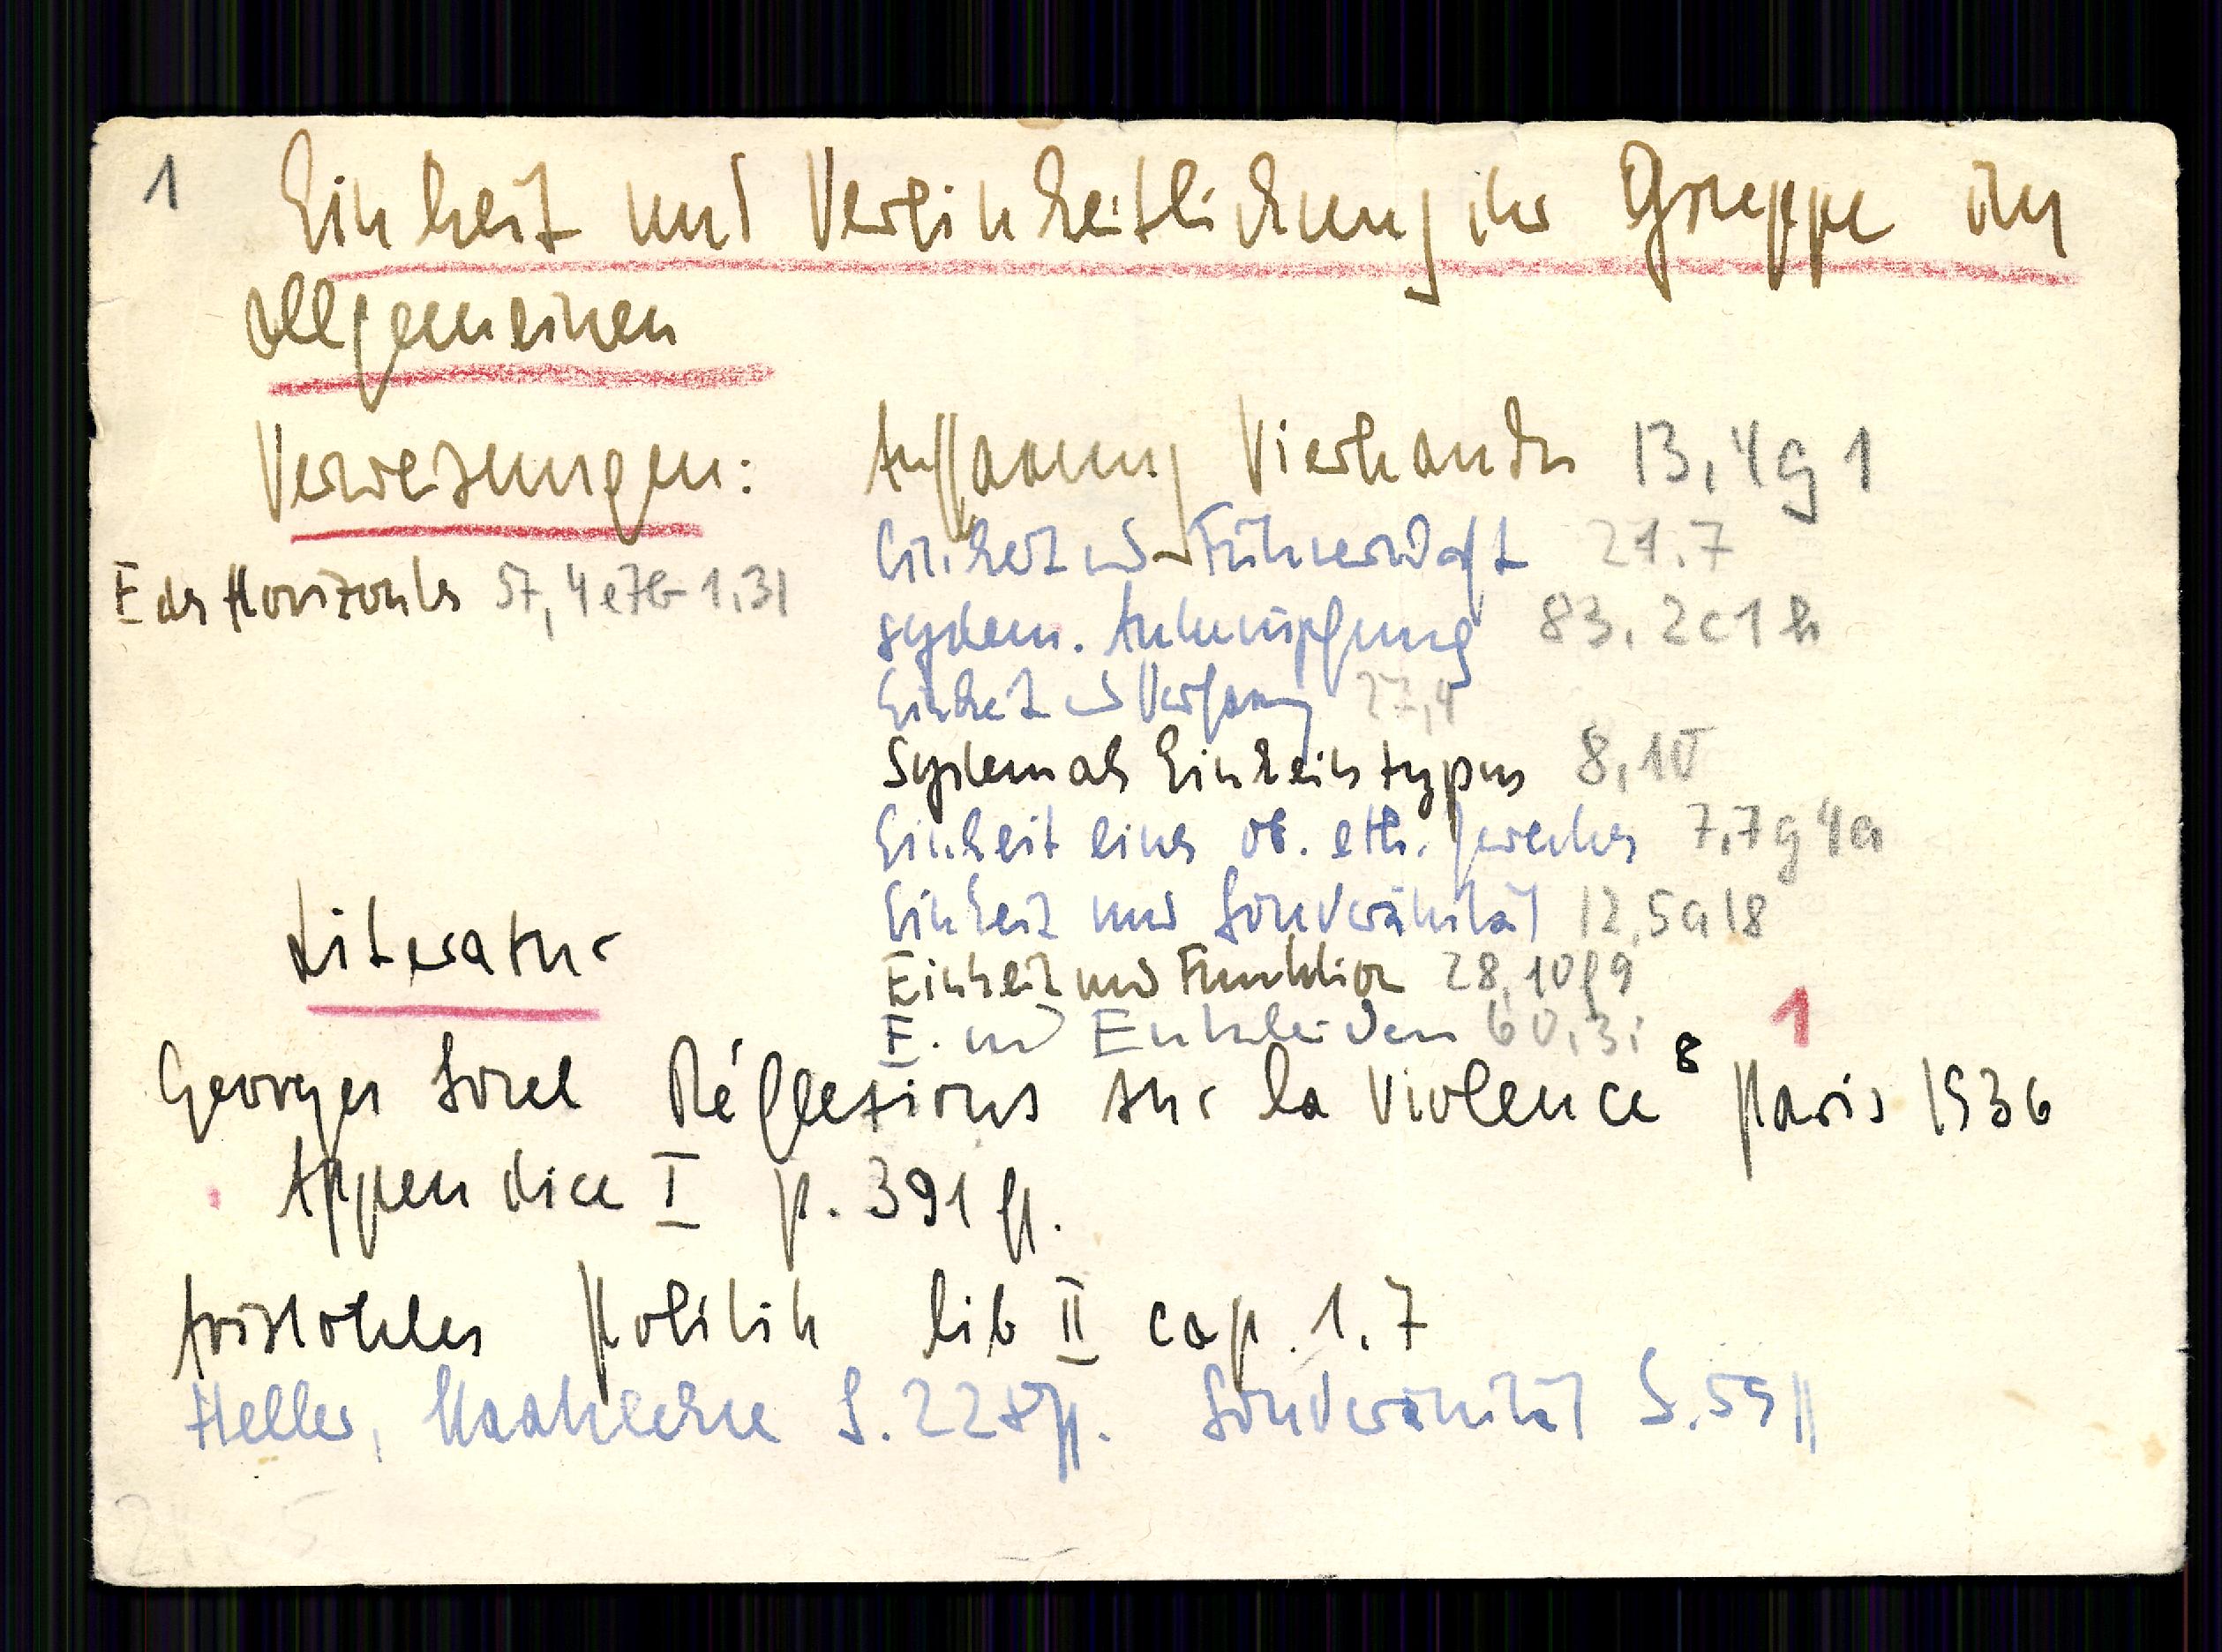 1 Einheit und Vereinheitlichung der Gruppe im
allgemeinen
Verweisungen: Auffassung Vierkandts 13,4g1
Einheit und Führerschaft 21.7
E des Horizontes 57,4e7b1,31
system. Anknüpfung 83,2c1h
Einheit und Verfassung 27,4
System als Einheitstypus 8,10
Einheit eines ob. eth. Zweckes 7,7g4a
Einheit und Souveränität 12,5a18
Literatur
Einheit und Funktion 28,10f9
E. und Entscheiden 60,3i
1
Georges Sorel Réflexions sur la Violence⁸ Paris 1936
Appendice I p. 391 ff.
Aristoteles Politik lib II cap. 1.7
Heller, Staatslehre S. 228ff. Souveränität S. 59 ff